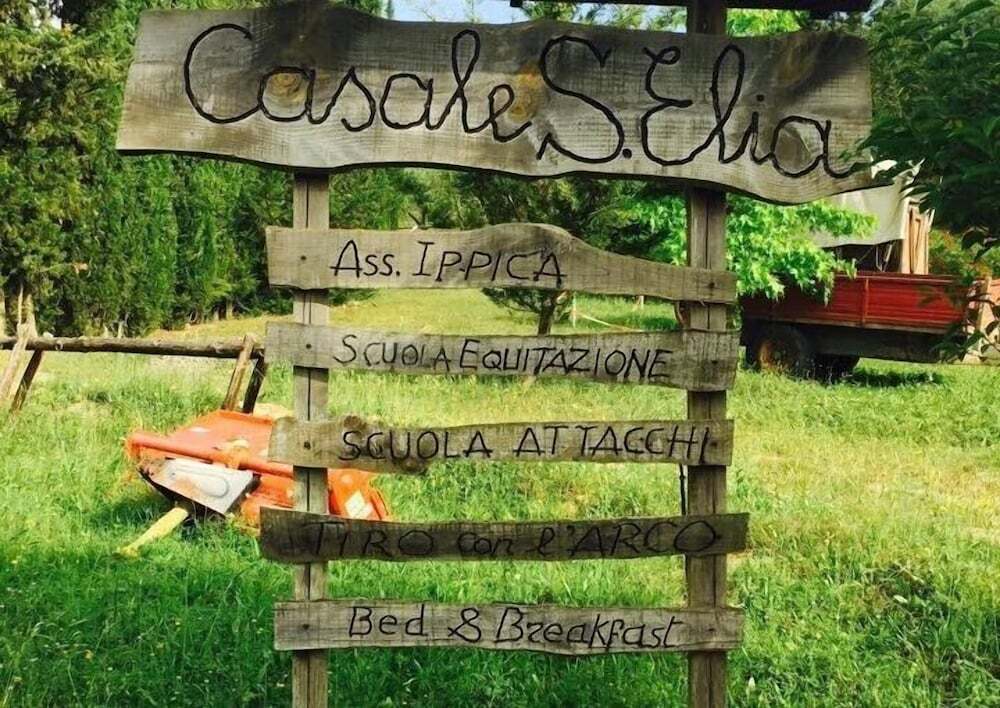 Casale S. Elia
Ass. IPPICA
SCUOLA EQUITAZIONE
SCUOLA ATTACCHI
TIRO con l'ARCO
Bed & Breakfast